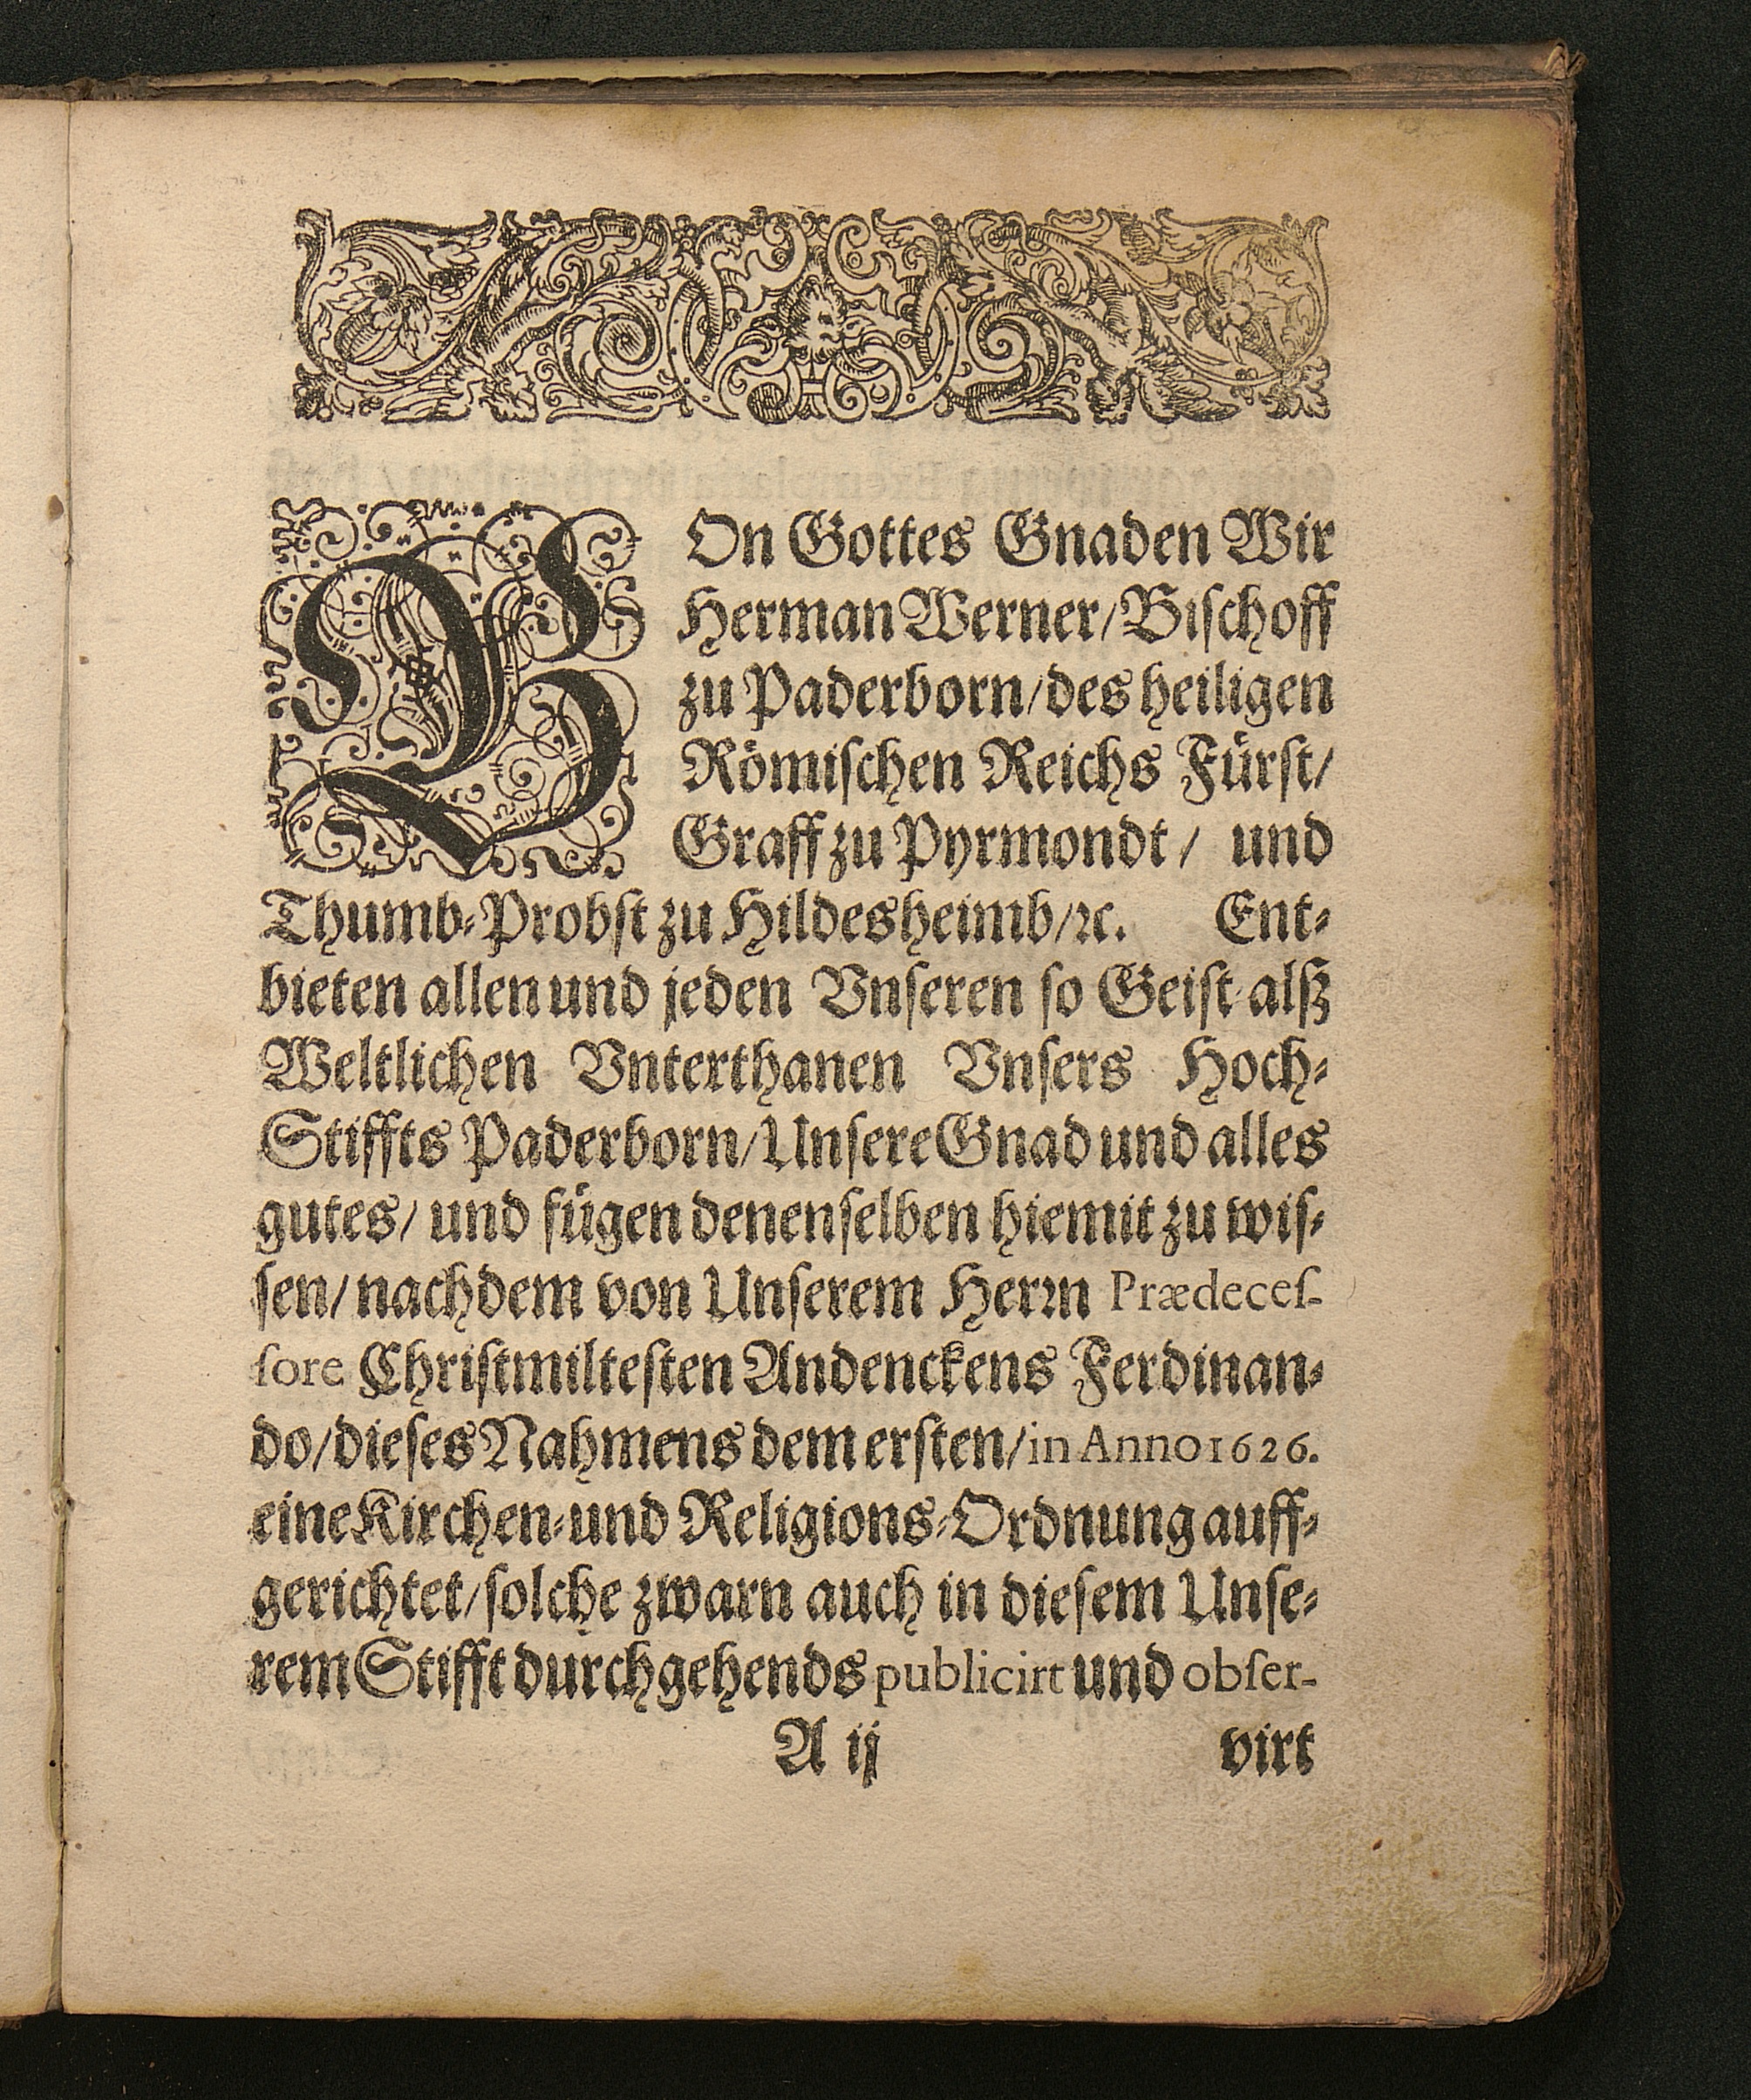 VOn Gottes Gnaden Wir
Herman Werner/ Bischoff
zu Paderborn/ des heiligen
Römischen Reichs Fürst/
Graff zu Pyrmondt / und
Thumb-Probst zu Hildesheimb/ ꝛc. Ent-
bieten allen und jeden Vnſeren ſo Geiſt- alſz
Weltlichen Vnterthanen Vnſers Hoch-
Stiffts Paderborn/ Unſere Gnad und alles
gutes/ und fügen denenſelben hiemit zu wiſ-
ſen/ nachdem von Unſerem Herꝛn Prædeceſ-
ſore Chriſtmilteſten Andenckens Ferdinan-
do/ dieſes Nahmens dem erſten/ in Anno 1626.
eine Kirchen- und Religions-Ordnung auff-
gerichtet/ ſolche zwarn auch in dieſem Unſe-
rem Stifft durchgehends publicirt und obſer-
A ij virt